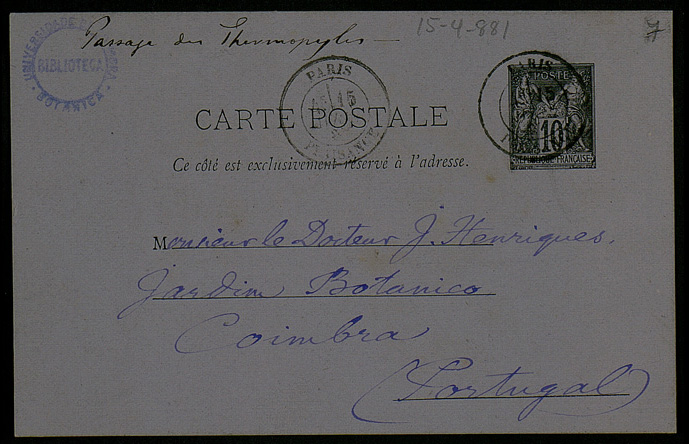 15-4-881
7
Passage des Thermopyles —
UNIVERSIDADE DE COIMBRA
BIBLIOTECA
BOTANICA
PARIS
15
PLAISANCE
PARIS
15
POSTE
10
REPUBLIQUE FRANÇAISE
CARTE POSTALE
Ce côté est exclusivement réservé à l'adresse.
Monsieur le Docteur J. Henriques.
Jardim Botanico
Coimbra
(Portugal)